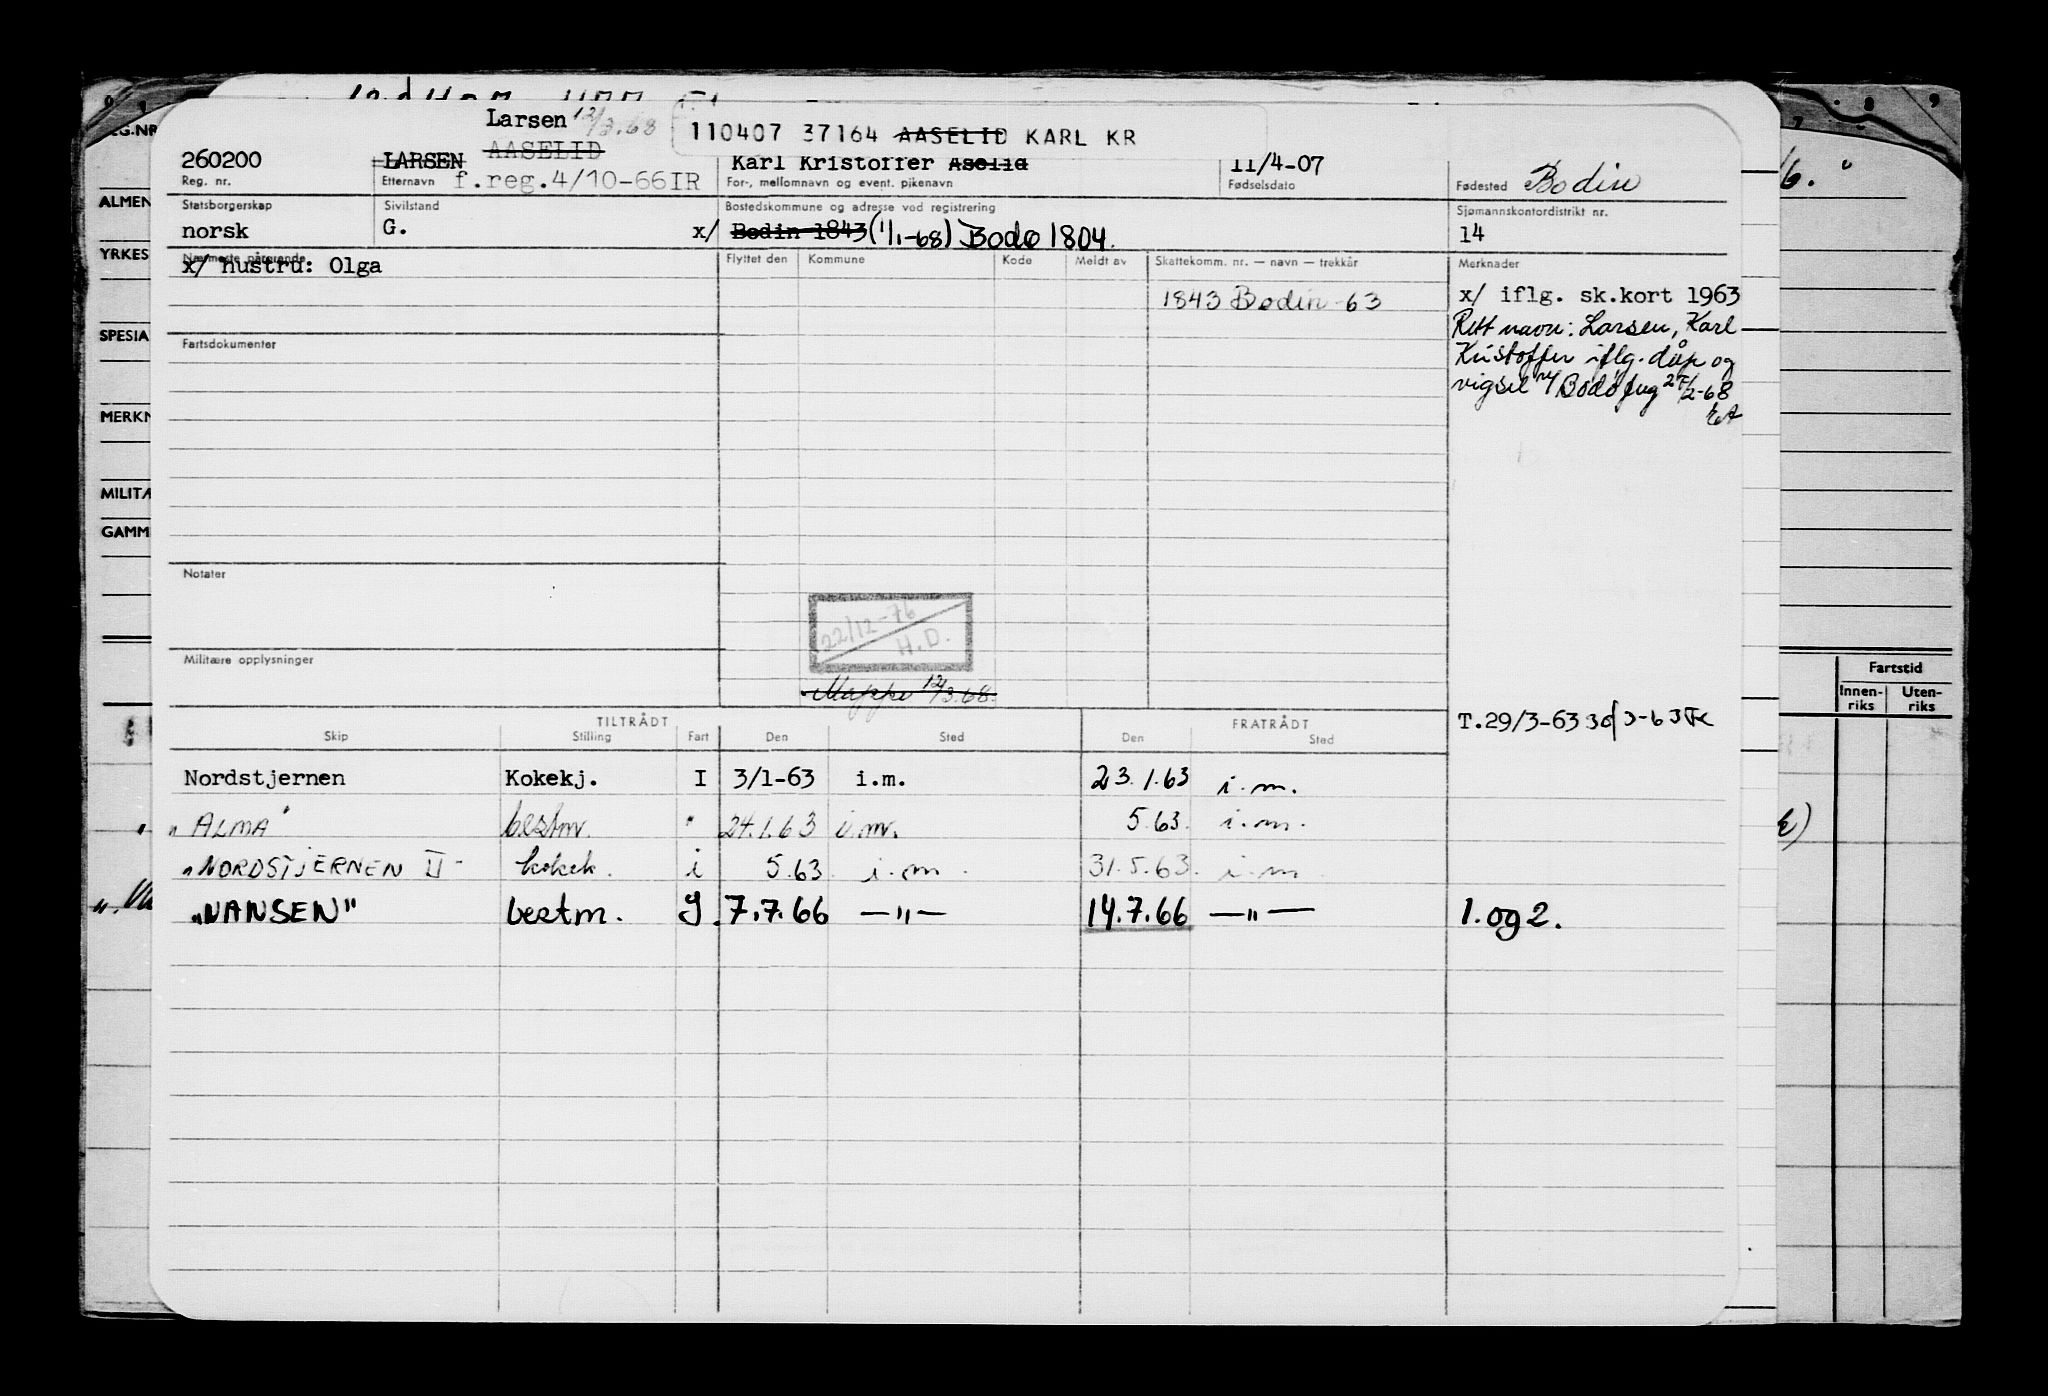 Larsen 12/3.68
110407 37164 AASELID KARL KR
AASELID
260200 LARSEN Karl Kristoffer Aselid 11/4-07
Reg. nr. Etternavn f.reg.4/10-66IR For-, mellomnavn og event. pikenavn Fødselsdato Fødested Bodin
Statsborgerskap Sivilstand Bostedskommune og adresse ved registrering Sjømannskontordistrikt nr.
norsk G. x/ Bodin 1843 (1/1-68) Bodø 1804. 14
Nærmeste pårørende Flyttet den Kommune Kode Meldt av Skattekomm. nr. — navn — trekkår Merknader
x/ hustru: Olga
1843 Bodin -63 x/ iflg. sk.kort 1963
Rett navn: Larsen, Karl
Fartsdokumenter Kristoffer iflg. dåp og
vigsel Bodø 2-68
Notater
22/12-76
H.D.
Militære opplysninger
Mappe 12/3.68.
TILTRÅDT FRATRÅDT T.29/3-63
Skip Stilling Fart Den Sted Den Sted
Nordstjernen Kokekj. I 3/1-63 i.m. 23.1.63 i.m.
"ALMA" bestm. " 24.1.63 i.m. 5.63. i.m.
"NORDSTJERNEN II" kokek. i 5.63 i.m. 31.5.63. i.m.
"NANSEN" bestm. I. 7.7.66 —"— 14.7.66 —"— 1. og 2.
ALMEN
YRKES
SPESIA
MERKN
MILITÆ
GAMM
Fartstid
Innen-riks Uten-riks